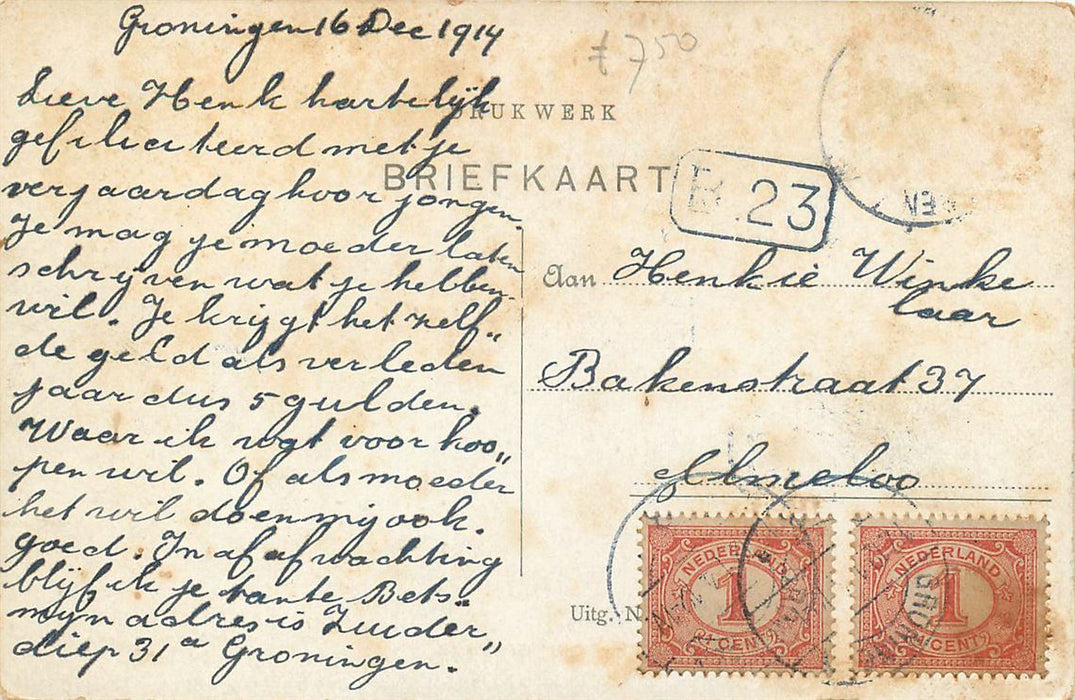 Groningen 16 Dec 1914
Lieve Henk hartelijk
gefiliciteerd met je
verjaardag hoor jongen
Je mag je moeder laten
schrijven wat je hebben
wil. Je krijgt het zelf„
de geld als verleden
jaar dus 5 gulden.
Waar ik wat voor koo„
pen wil. Of als moeder
het wil doen mij ook.
goed. In af afwachting
blijf ik je tante Bets
mijn adres is Zuider„
diep 31a Groningen.
£ 750
DRUKWERK
BRIEFKAART
B. 23
Aan Henkie Winke
laar
Bakenstraat 37
Almeloo
NEDERLAND
1
CENT
NEDERLAND
1
CENT
Uitg. N.